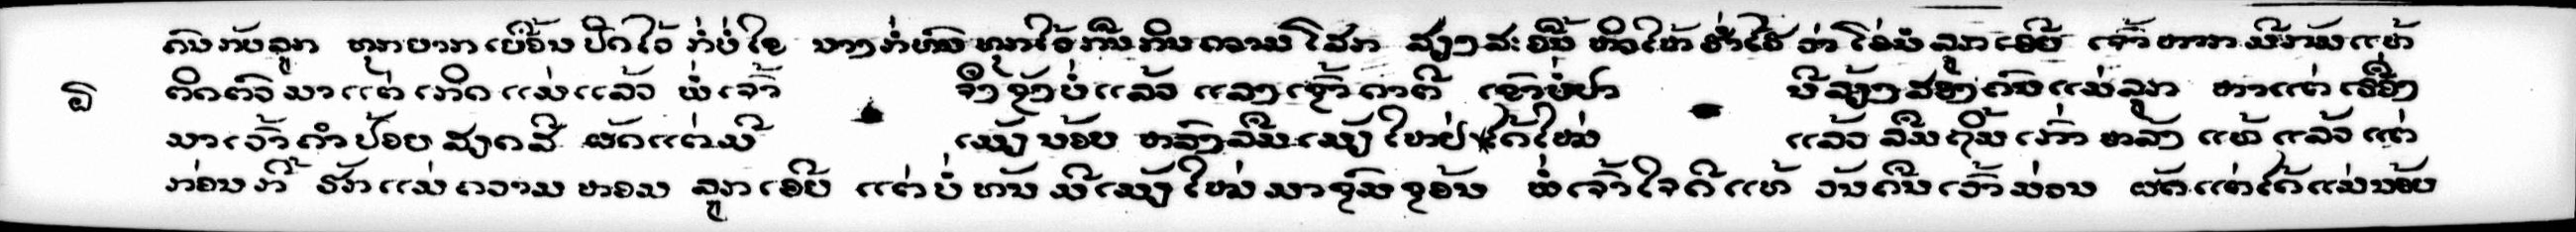 ຄົນກັບລູກ ທຸກຍາກ ປີກໄວ້ ກໍ່ບໍ່ໃຂ ນາງກໍ່ ກືນກິນຄວາມໂສກ ສຽງສະອື້ນ ຫົວໃຫ້ຮ່ຳໄຮ ວ່າ ໂອ່ນໍລູກເອີຍ ເຈົ້າຫາກມີກັມແທ້
ຕິດຕົວມາແຕ່ເກີດແມ່ແລ້ວ ພໍ່ເຈົ້າ ຈຶ່ງຊັງບໍ່ແລ້ວ ແລງເຊົ້າດາຕີ ເຊົາບໍ່ປາ ສອງຄົນແມ່ລູກ ຫາແຕ່ເຣື່ອງ
ມາເວົ້າຄຳປ້ອຍສຽດສີ ຜັດແຕ່ມີ ເມັຽນ້ອຍ ຫລົງລືມເມັຽໃຫຍ່ ໄດ້ໃໝ່ ແລ້ວລືມຖິ້ມເກົ່າ ຫລັງ ແທ້ ແລ້ວ ແຕ່
ກ່ອນກີ້ ຮັກແມ່ຄວາມຫອມ ລູກເອີຍ ແຕ່ບໍ່ທັນມີເມັຽໃໝ່ມາຊຸມຊ້ອນ ພໍ່ເຈົ້າໃຈດີແທ້ ວັນຄືນເວົ້າມ່ວນ ຜັດແຕ່ໄດ້ແມ່ນ້ອຍ